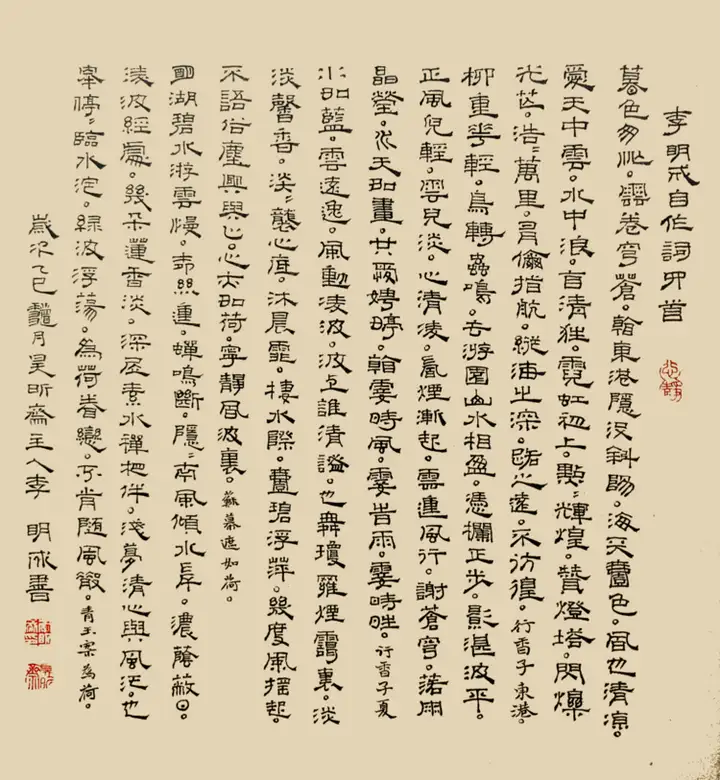 李明成自作詞四首
暮色匆。卷穹蒼。東港隱沒斜陽。海天色。風也清凉。
愛天中雲。水中浪。言清狂。霓虹初上。點點輝煌。贊燈塔。閃爍
光芒。浩浩萬里。指航。縱海之深。路之遠。不彷徨。行香子東港。
柳重花輕。鳥轉蟲鳴。去游園山水相盈。憑欄正步。影湛波平。
正風兒輕。雲兒淡。心清凌。嵐煙漸起。雲重風行。謝蒼穹。諾雨
晶瑩。水天如畫。共舞娉婷。霎時風。霎時雨。霎時晴。行香子夏
水如藍。雲遠逸。風動凌波。波上誰清謐。也舞瓊羅煙靄裏。淡
淡馨香。淡淡襲心庭。沐晨霏。棲水際。疊碧浮萍。幾度風搖起。
不語俗塵興與亡。心亦如荷。寧靜風波裏。蘇幕遮如荷。
明湖碧水游雲慢。柳絲重。蟬鳴斷。隱隱南風傾水岸。濃蔭蔽日。
凌波經處。幾朵蓮香淡。深居素水禪相伴。淺夢清心與風泛。也
停停臨水。綠波浮蕩。為荷眷戀。不肯隨風散。青玉案為荷。
歲次乙巳月昊昕齋主人李明成書